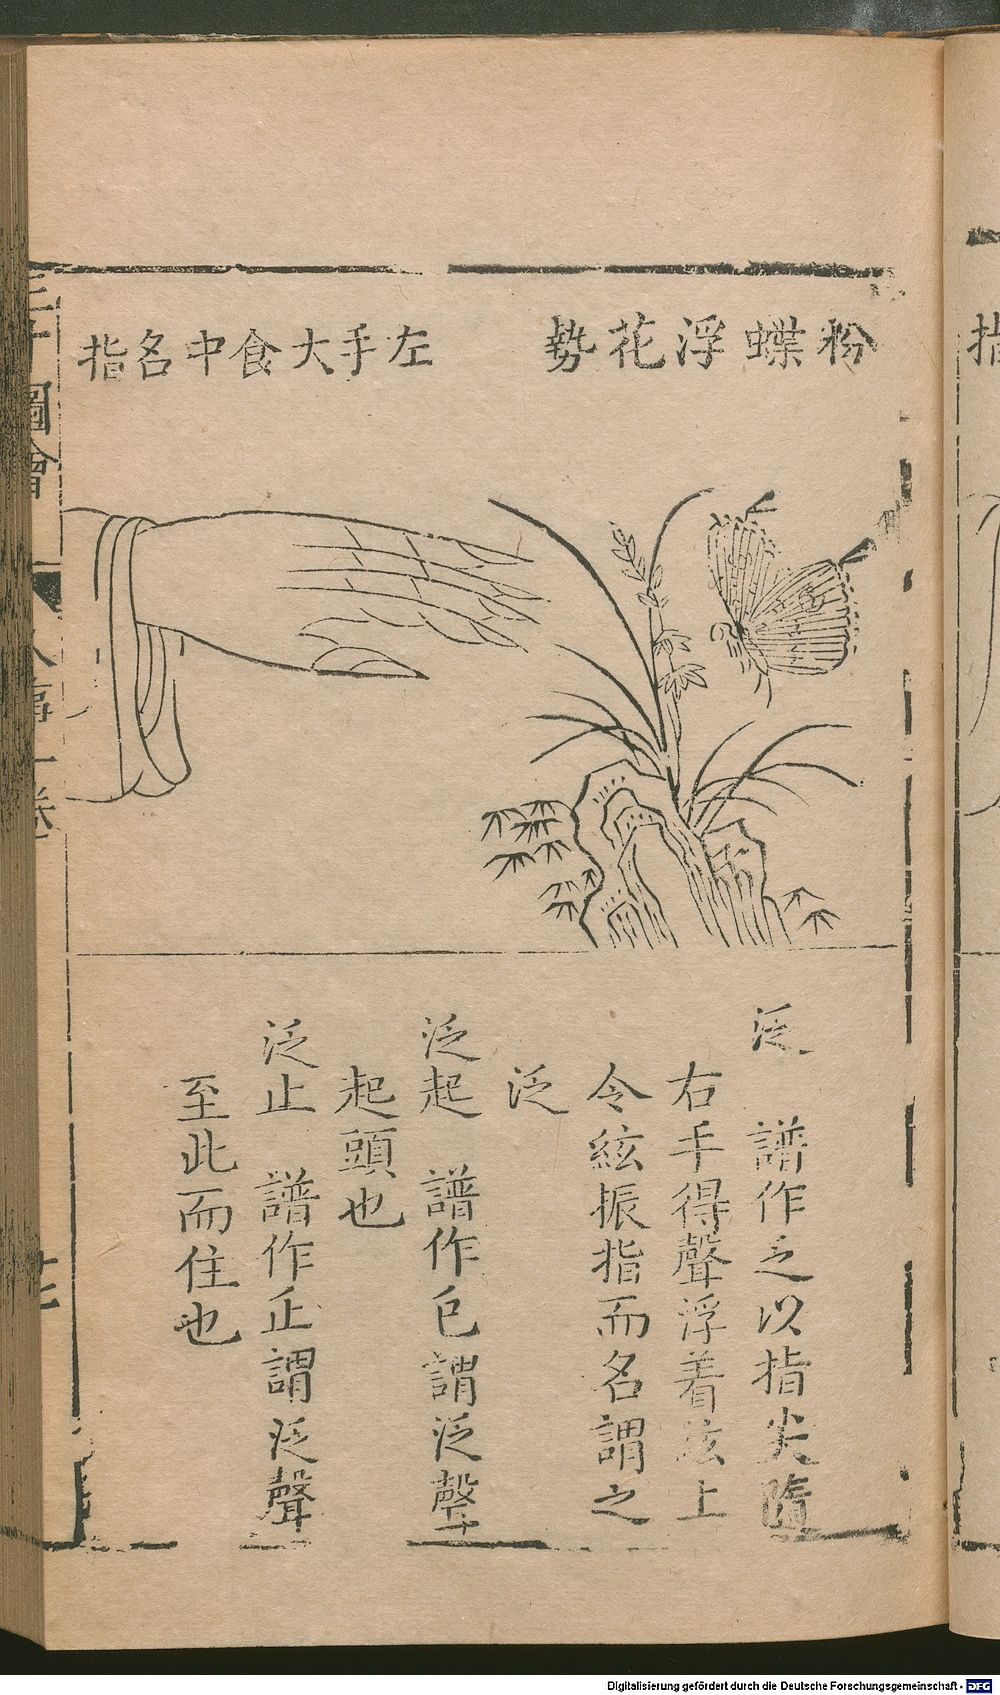 粉蝶浮花勢
左手大食中名指
泛 譜作乏以指尖隨
右手得聲浮着弦上
令絃振指而名謂之
泛
泛起 譜作㔾謂泛聲
起頭也
泛止 譜作正謂泛聲
至此而住也
三才圖會
人事一卷
指
Digitalisierung gefördert durch die Deutsche Forschungsgemeinschaft - DFG